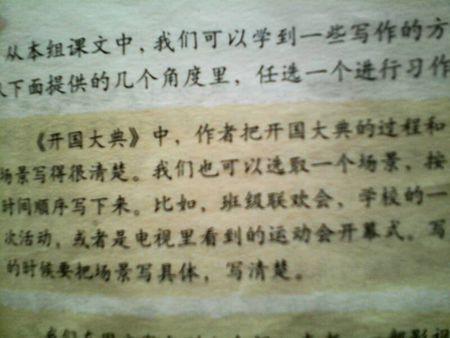 从本组课文中，我们可以学到一些写作的方
下面提供的几个角度里，任选一个进行习作
《开国大典》中，作者把开国大典的过程和
场景写得很清楚。我们也可以选取一个场景，按
时间顺序写下来。比如，班级联欢会，学校的一
次活动，或者是电视里看到的运动会开幕式。写
的时候要把场景写具体，写清楚。